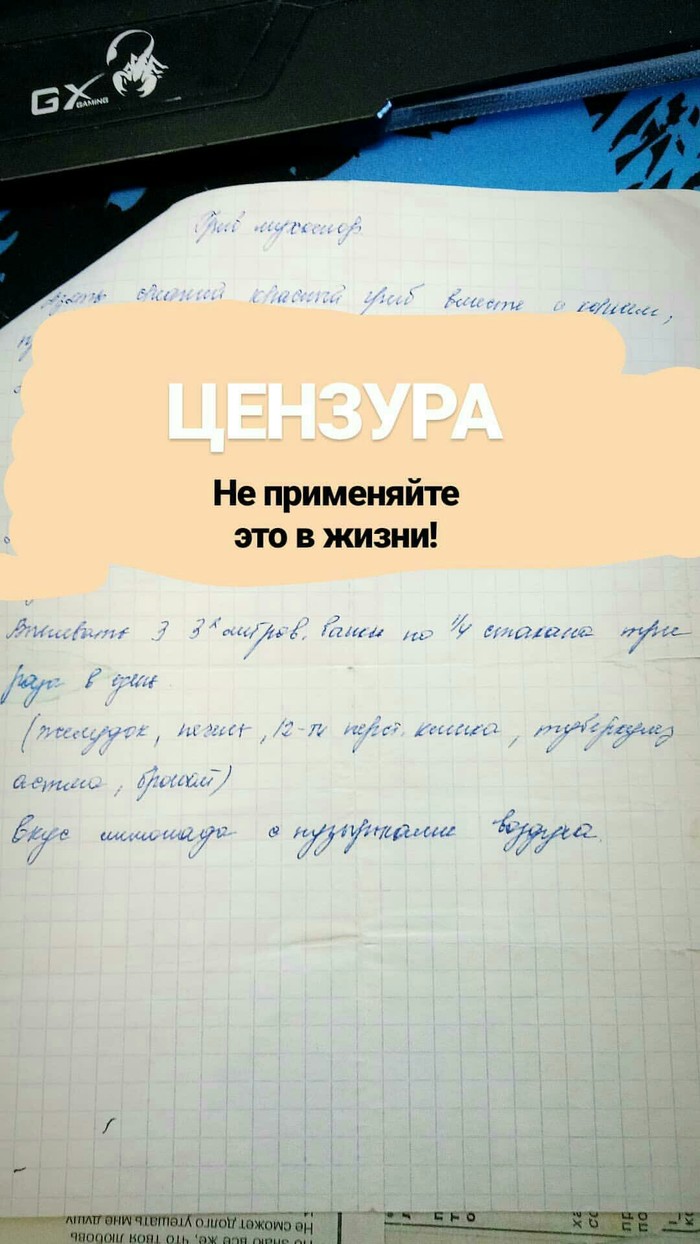 GX
GAMING
Гриб мухомор
Взять свежий красный гриб вместе с корнем,
ЦЕНЗУРА
Не применяйте
это в жизни!
Выпивать 3 3х литров. банки по 1/4 стакана три
раза в день
(желудок, печень, 12-ти перст. кишка, туберкулез
астма, бронхит)
Вкус лимонада с пузырьками воздуха.
Не сможет долго утешать мне душу
знаю все же, что твоя любовь